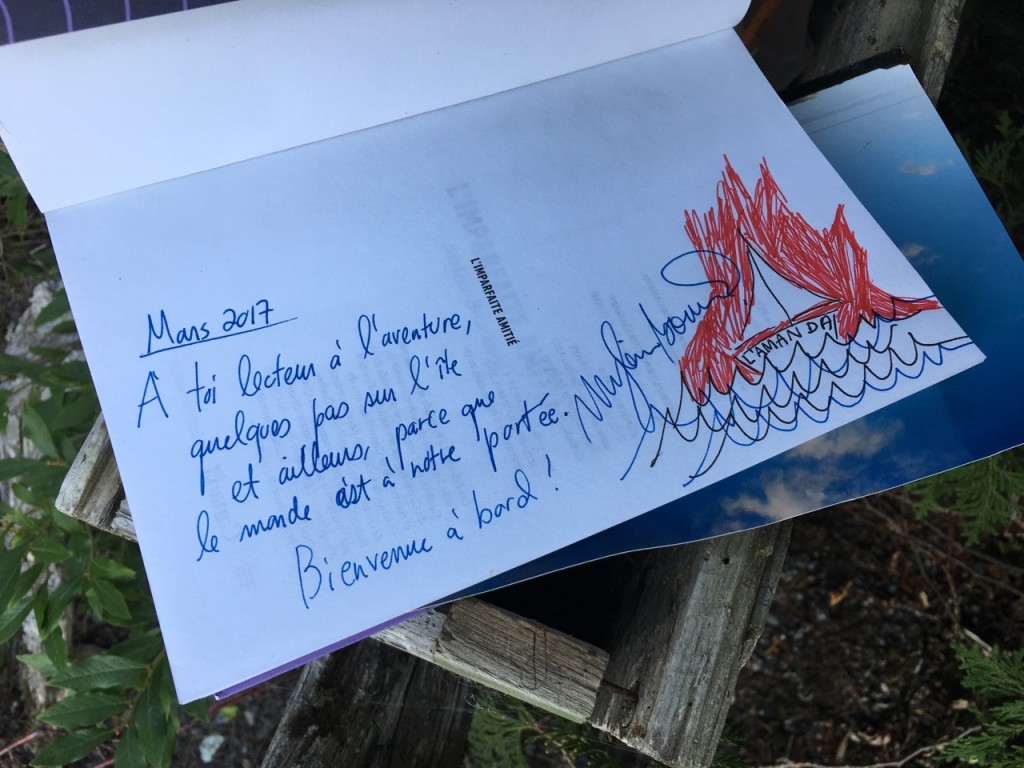 Mars 2017
À toi lecteur à l'aventure,
quelques pas sur l'île
et ailleurs, parce que
le monde est à notre portée.
Bienvenue à bord !
L'IMPARFAITE AMITIÉ
L'AMANDA